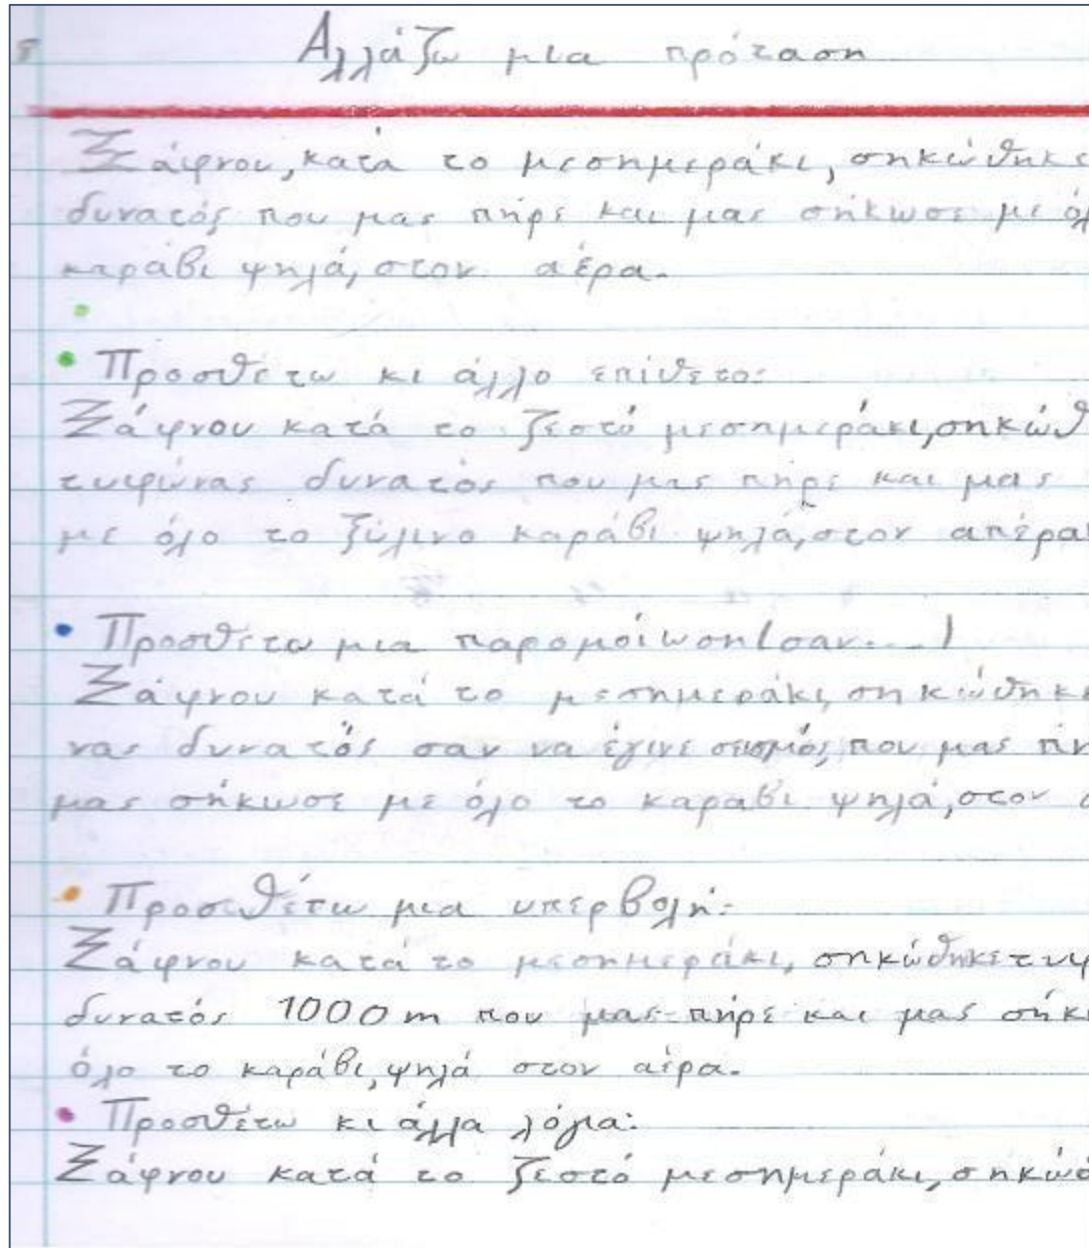 Αλλάζω μια πρόταση
Ξάφνου, κατά το μεσημεράκι, σηκώθηκε
δυνατός που μας πήρε και μας σήκωσε με όλ
καράβι ψηλά, στον αέρα.
• Προσθέτω κι άλλο επίθετο:
Ξάφνου κατά το ζεστό μεσημεράκι, σηκώθ
τυφώνας δυνατός που μας πήρε και μας
με όλο το ξύλινο καράβι ψηλά, στον απέρα
• Προσθέτω μια παρομοίωση (σαν....)
Ξάφνου κατά το μεσημεράκι, σηκώθηκε
νας δυνατός σαν να έγινε σεισμός, που μας πή
μας σήκωσε με όλο το καράβι ψηλά, στον α
• Προσθέτω μια υπερβολή:
Ξάφνου κατά το μεσημεράκι, σηκώθηκε τυφ
δυνατός 1000 m που μας πήρε και μας σήκω
όλο το καράβι, ψηλά στον αέρα.
• Προσθέτω κι άλλα λόγια:
Ξάφνου κατά το ζεστό μεσημεράκι, σηκώθ